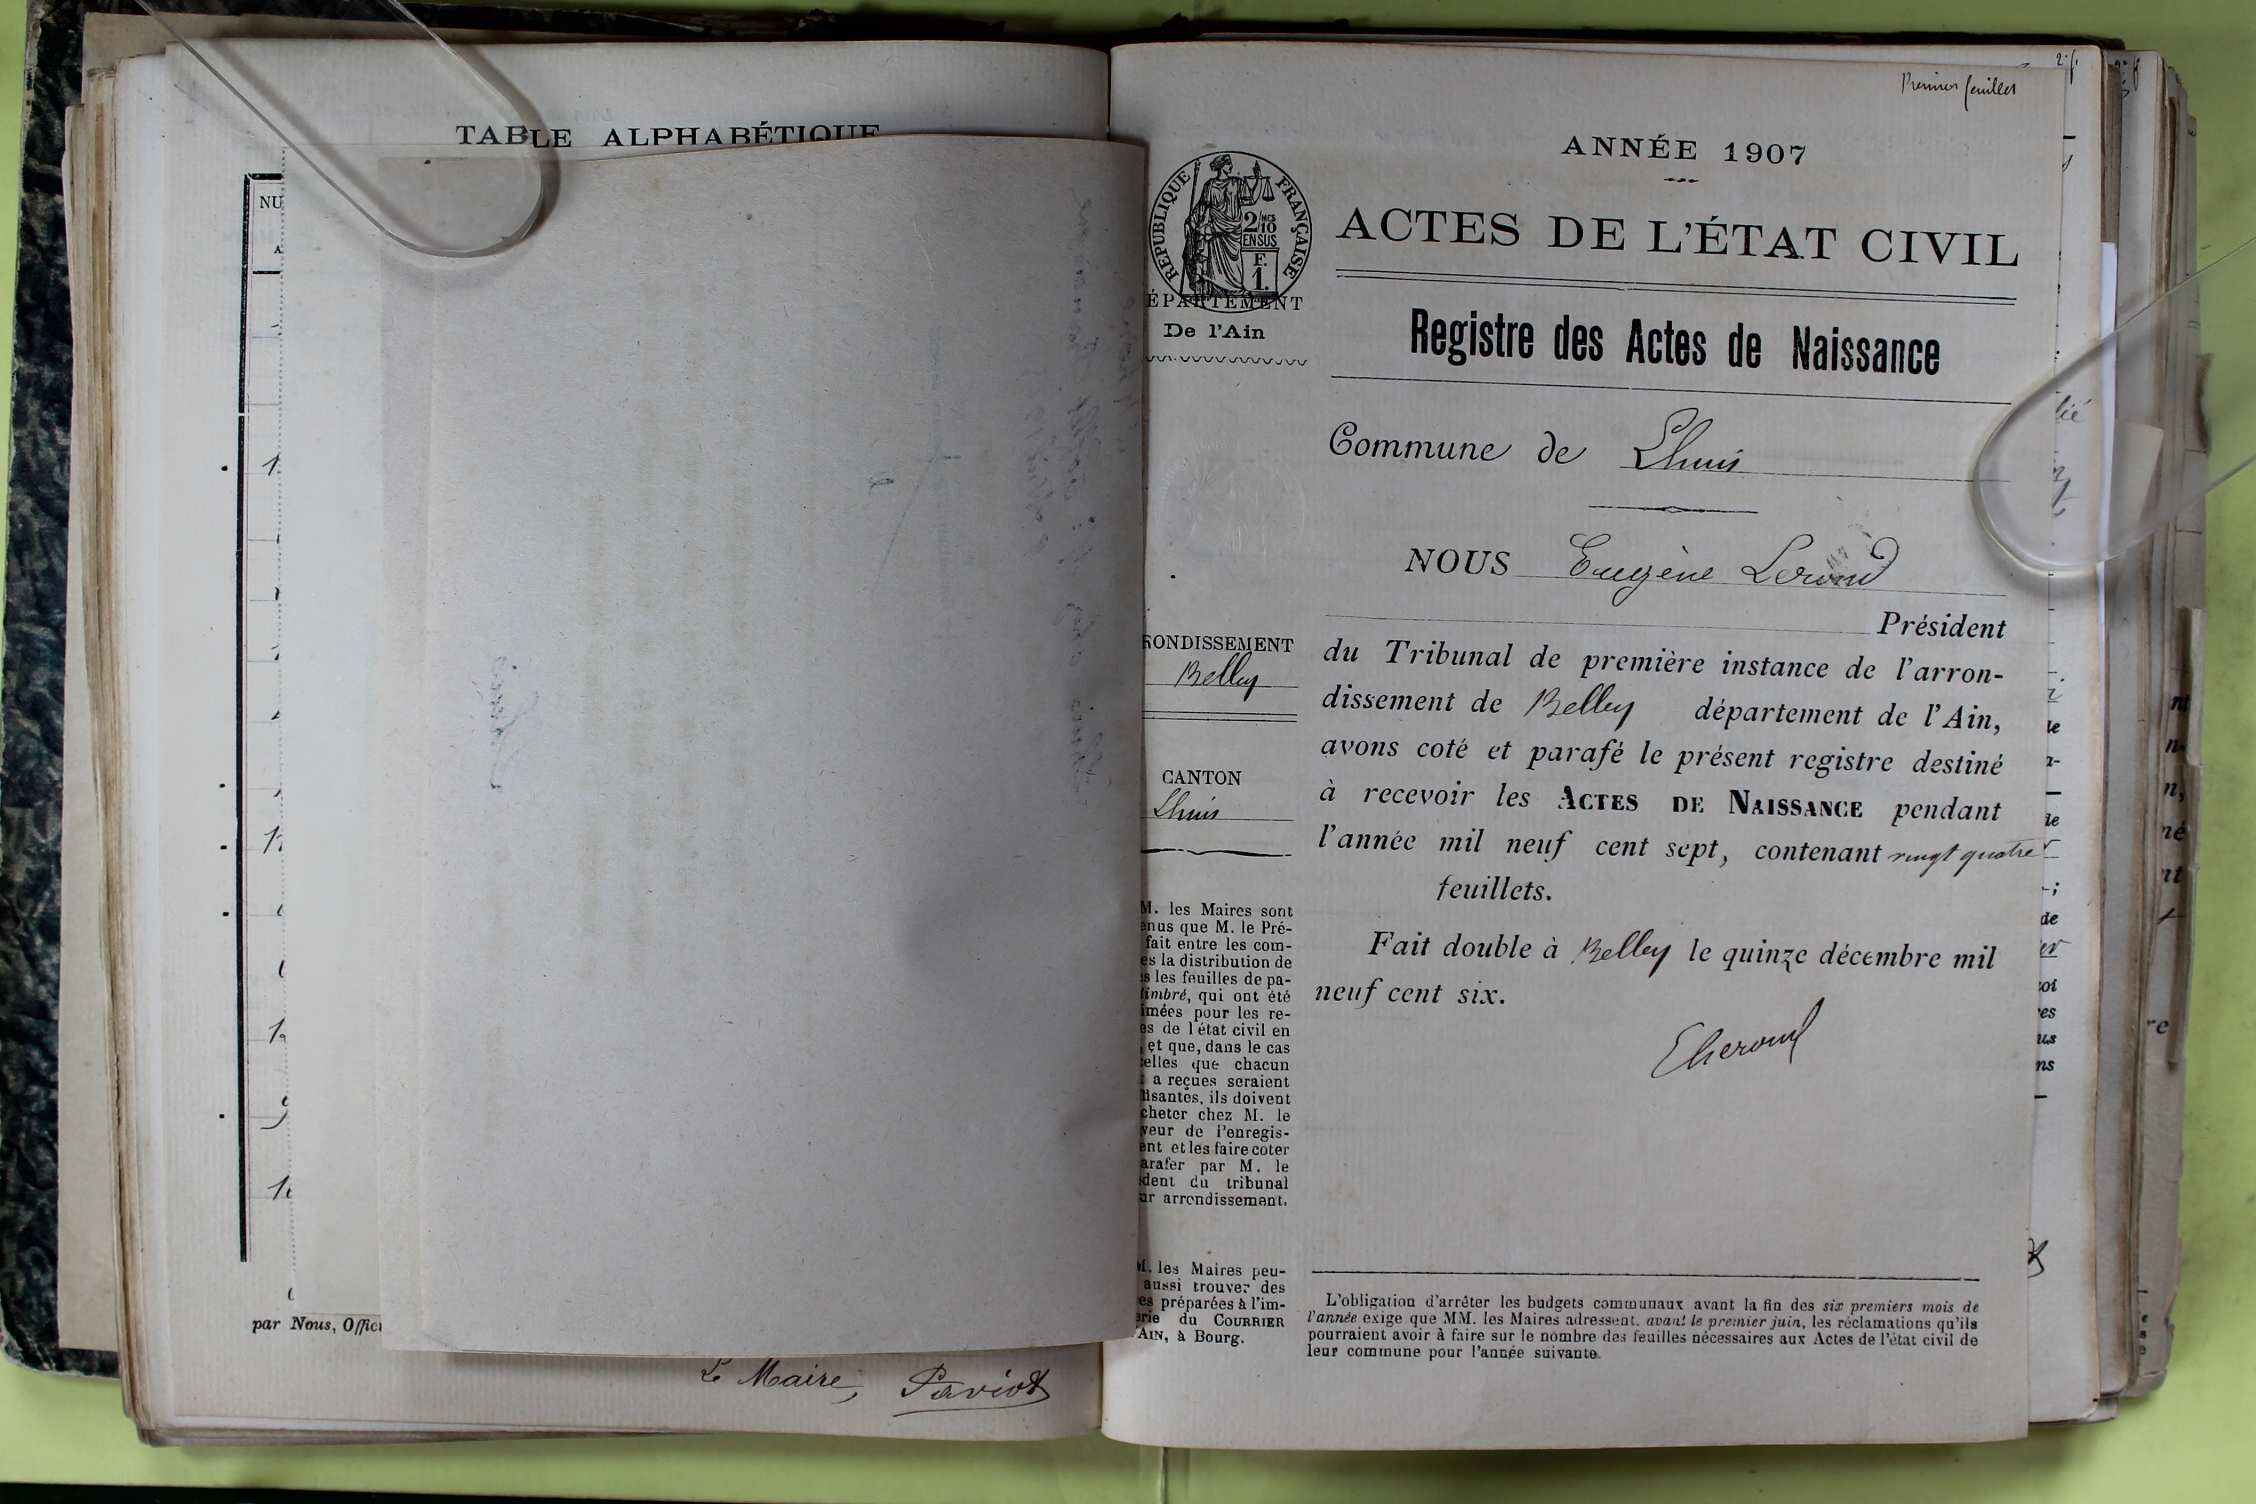 TABLE ALPHABÉTIQUE
NU
A
par Nous, Offici
Le Maire,
Premier feuillet
ANNÉE 1907
RÉPUBLIQUE FRANÇAISE
2/10
EN SUS
F.
1.
ACTES DE L'ÉTAT CIVIL
ÉPARTEMENT
De l'Ain
Registre des Actes de Naissance
Commune de Lhuis
NOUS Eugène
Président
RONDISSEMENT
Belley
CANTON
Lhuis
du Tribunal de première instance de l'arron-
dissement de Belley département de l'Ain,
avons coté et parafé le présent registre destiné
à recevoir les ACTES DE NAISSANCE pendant
l'année mil neuf cent sept, contenant vingt quatre
feuillets.
Fait double à Belley le quinze décembre mil
neuf cent six.
M. les Maires sont
enus que M. le Pré-
fait entre les com-
es la distribution de
s les feuilles de pa-
timbré, qui ont été
imées pour les re-
es de l'état civil en
, et que, dans le cas
elles que chacun
a reçues seraient
fisantes, ils doivent
cheter chez M. le
veur de l'enregis-
ent et les faire coter
arafer par M. le
ident du tribunal
ur arrondissement.
M. les Maires peu-
aussi trouver des
es préparées à l'im-
erie du COURRIER
AIN, à Bourg.
L'obligation d'arrêter les budgets communaux avant la fin des six premiers mois de
l'année exige que MM. les Maires adressent, avant le premier juin, les réclamations qu'ils
pourraient avoir à faire sur le nombre des feuilles nécessaires aux Actes de l'état civil de
leur commune pour l'année suivante.